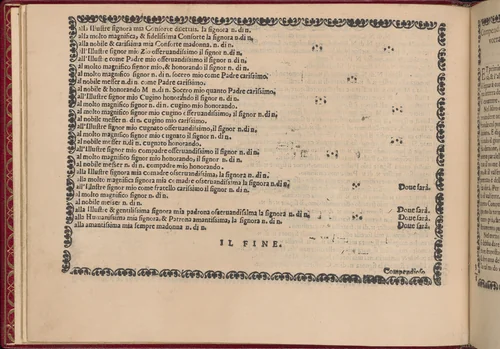 alla Illustre signora mia Consorte dilettiss. la signora n. di n.
alla molto magnifica, & fidelissima Consorte la signora n. di n.
alla nobile & carissima mia Consorte madonna. n. di n.
all'Illustre signor mio Zio osseruandissimo il signor n. di n.
all'Illustre come Padre mio osseruandissimo il signor n. di n.
al molto magnifico signor mio, & honorando il signor n. di n.
al molto magnifico signor n. di n. socero mio come Padre carissimo.
al nobile messer n. di n. come Padre carissimo.
al nobile & honorando M n. di n. Socero mio quanto Padre carissimo,
all'Illustre signor mio Cugino honorando il signor n. di n.
al molto magnifico signor n. di n. cugino mio honorando.
al molto magnifico signor mio cugino osseruandissimo, il signor n. di n.
al nobile messer n. di n. cugino mio carissimo.
all'Illustre signor mio cugnato osseruandissimo, il signor n. di n.
al molto magnifico signor mio cugnato il signor n. di n.
al nobile messer n. di n. cugnato honorando.
all'Illustre signor mio compadre osseruandissimo il signor n. di n.
al molto magnifico signor mio honorando, il signor n. di n.
al nobile messer n. di n. compadre mio honorando.
alla Illustre signora mia comadre osseruandissima, la signora n. di n.
alla molto magnifica signora mia comadre osseruandissima la signora n. di n.
all'Illustre signor mio come fratello carissimo il signor n. di n. Doue sarà.
al molto magnifico signor n. di n.
al nobile messer n. di n.
alla Illustre & gentilissima signora mia padrona osseruandissima la signora n. di n. Doue sarà.
alla Humanissima mia signora, & Patrona amantissima, la signora n. di n. Doue sarà.
alla amantissima mia sempre madonna n. di n. Doue sarà.
IL FINE.
Compendioso